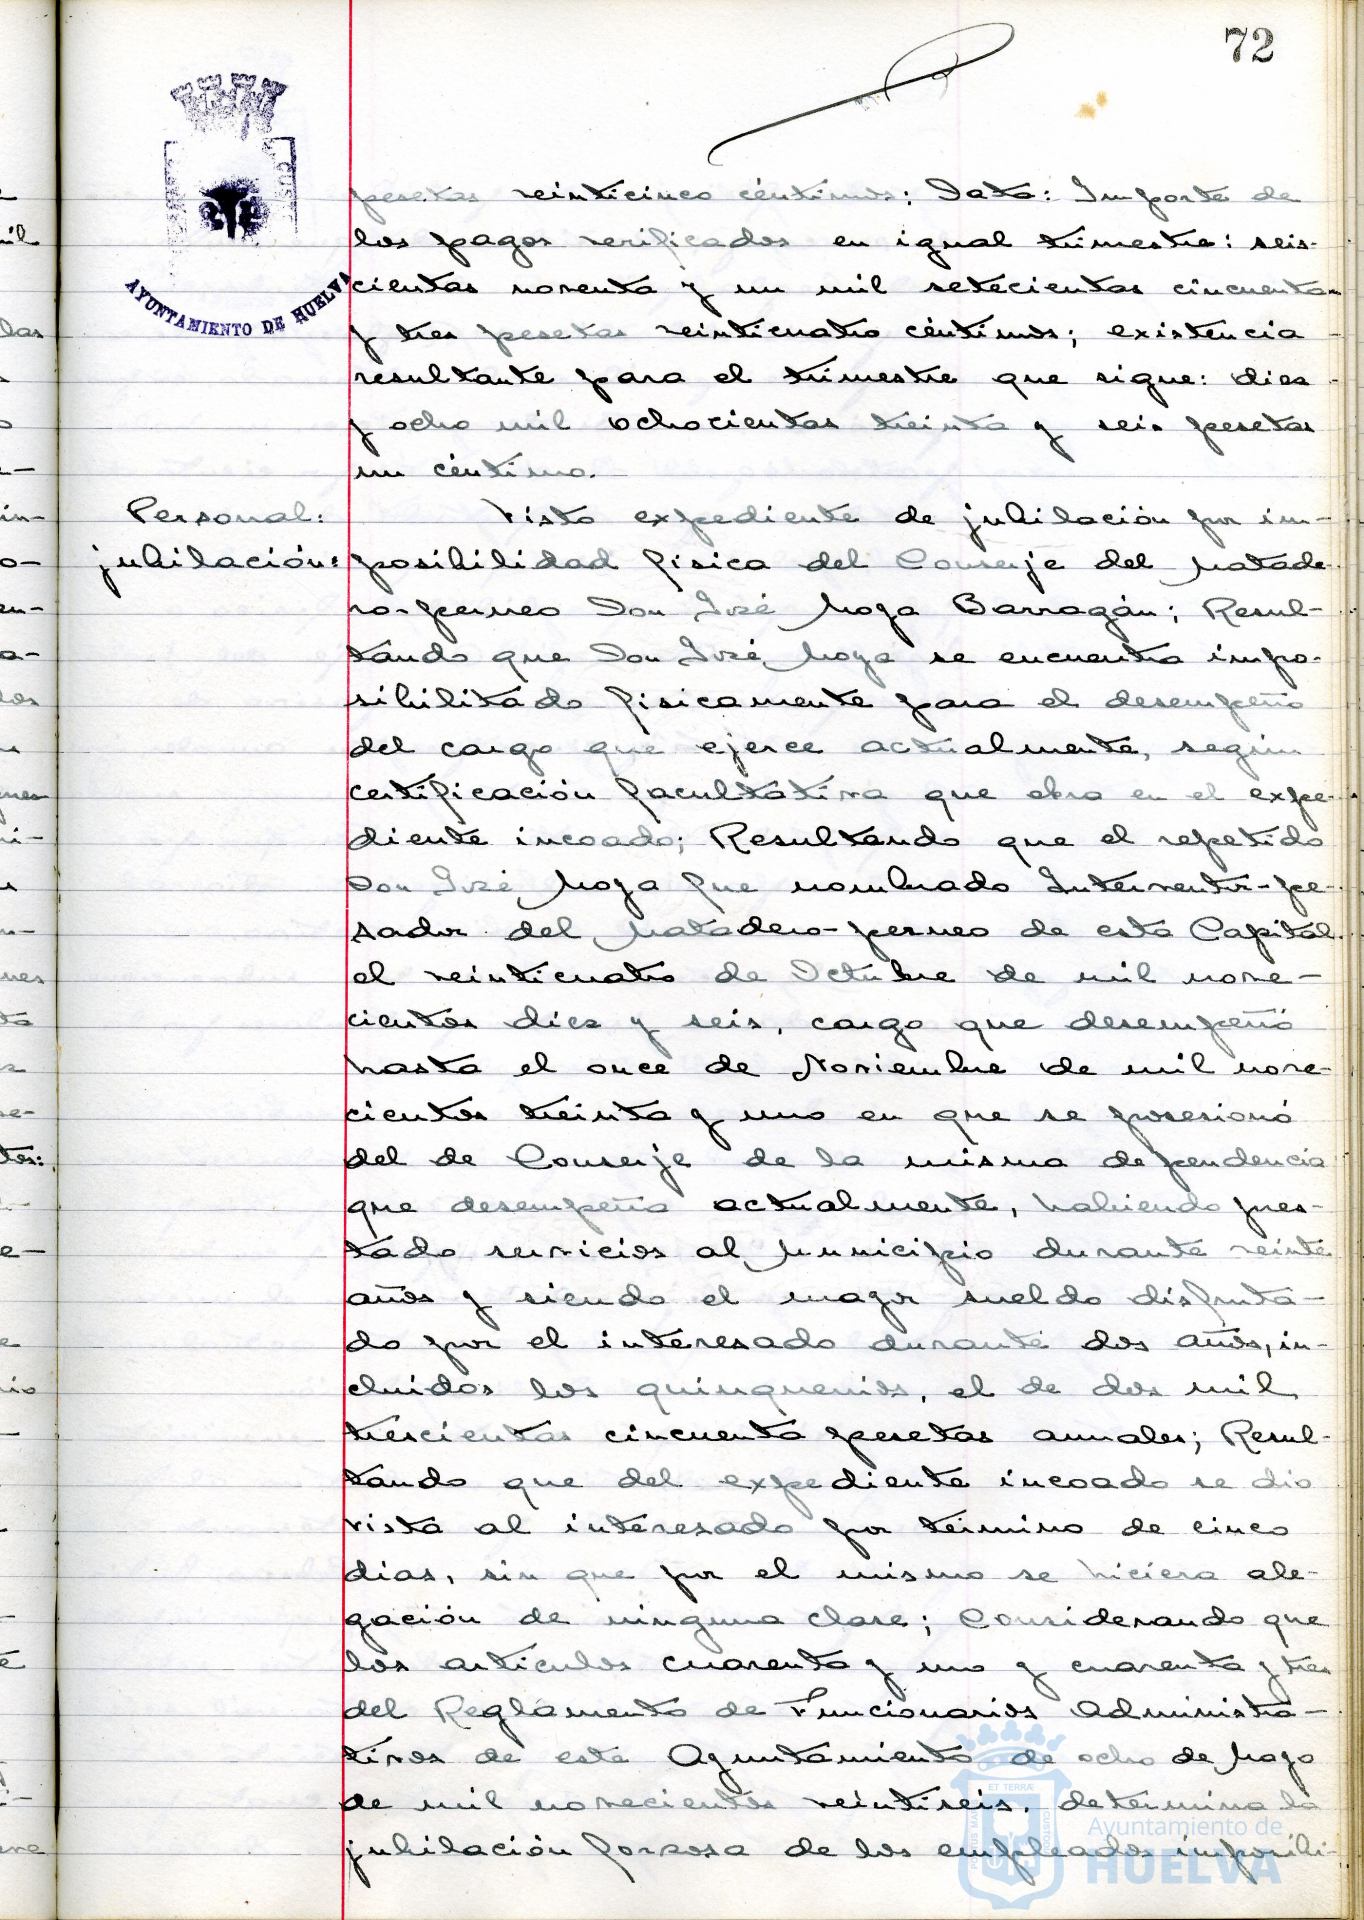 72
AYUNTAMIENTO DE HUELVA
pesetas veinticinco céntimos; Data: Importe de
los pagos verificados en igual trimestre: seis-
cientas noventa y un mil setecientas cincuenta
y tres pesetas veinticuatro céntimos; existencia
resultante para el trimestre que sigue: diez
y ocho mil ochocientas treinta y seis pesetas
un céntimo.
Personal:
jubilación:
Visto expediente de jubilación por im-
posibilidad física del Conserje del Matade-
ro-perneo Don José Moya Barragán; Resul-
tando que Don José Moya se encuentra impo-
sibilitado fisicamente para el desempeño
del cargo que ejerce actualmente, según
certificación facultativa que obra en el expe-
diente incoado; Resultando que el repetido
Don José Moya fue nombrado Interventor-pe-
sador del Matadero-perneo de esta Capital
el veinticuatro de Octubre de mil nove-
cientos diez y seis, cargo que desempeñó
hasta el once de Noviembre de mil nove-
cientos treinta y uno en que se posesionó
del de Conserje de la misma dependencia
que desempeña actualmente, habiendo pres-
tado servicios al Municipio durante veinte
años y siendo el mayor sueldo disfruta-
do por el interesado durante dos años, in-
cluidos los quinquenios, el de dos mil
trescientas cincuenta pesetas anuales; Resul-
tando que del expediente incoado se dió
vista al interesado por término de cinco
dias, sin que por el mismo se hiciera ale-
gación de ninguna clase; Considerando que
los artículos cuarenta y uno y cuarenta y tres
del Reglamento de Funcionarios Administra-
tivos de este Ayuntamiento de ocho de Mayo
de mil novecientos veintiseis, determina la
jubilación forzosa de los empleados imposibi-
Ayuntamiento de
HUELVA